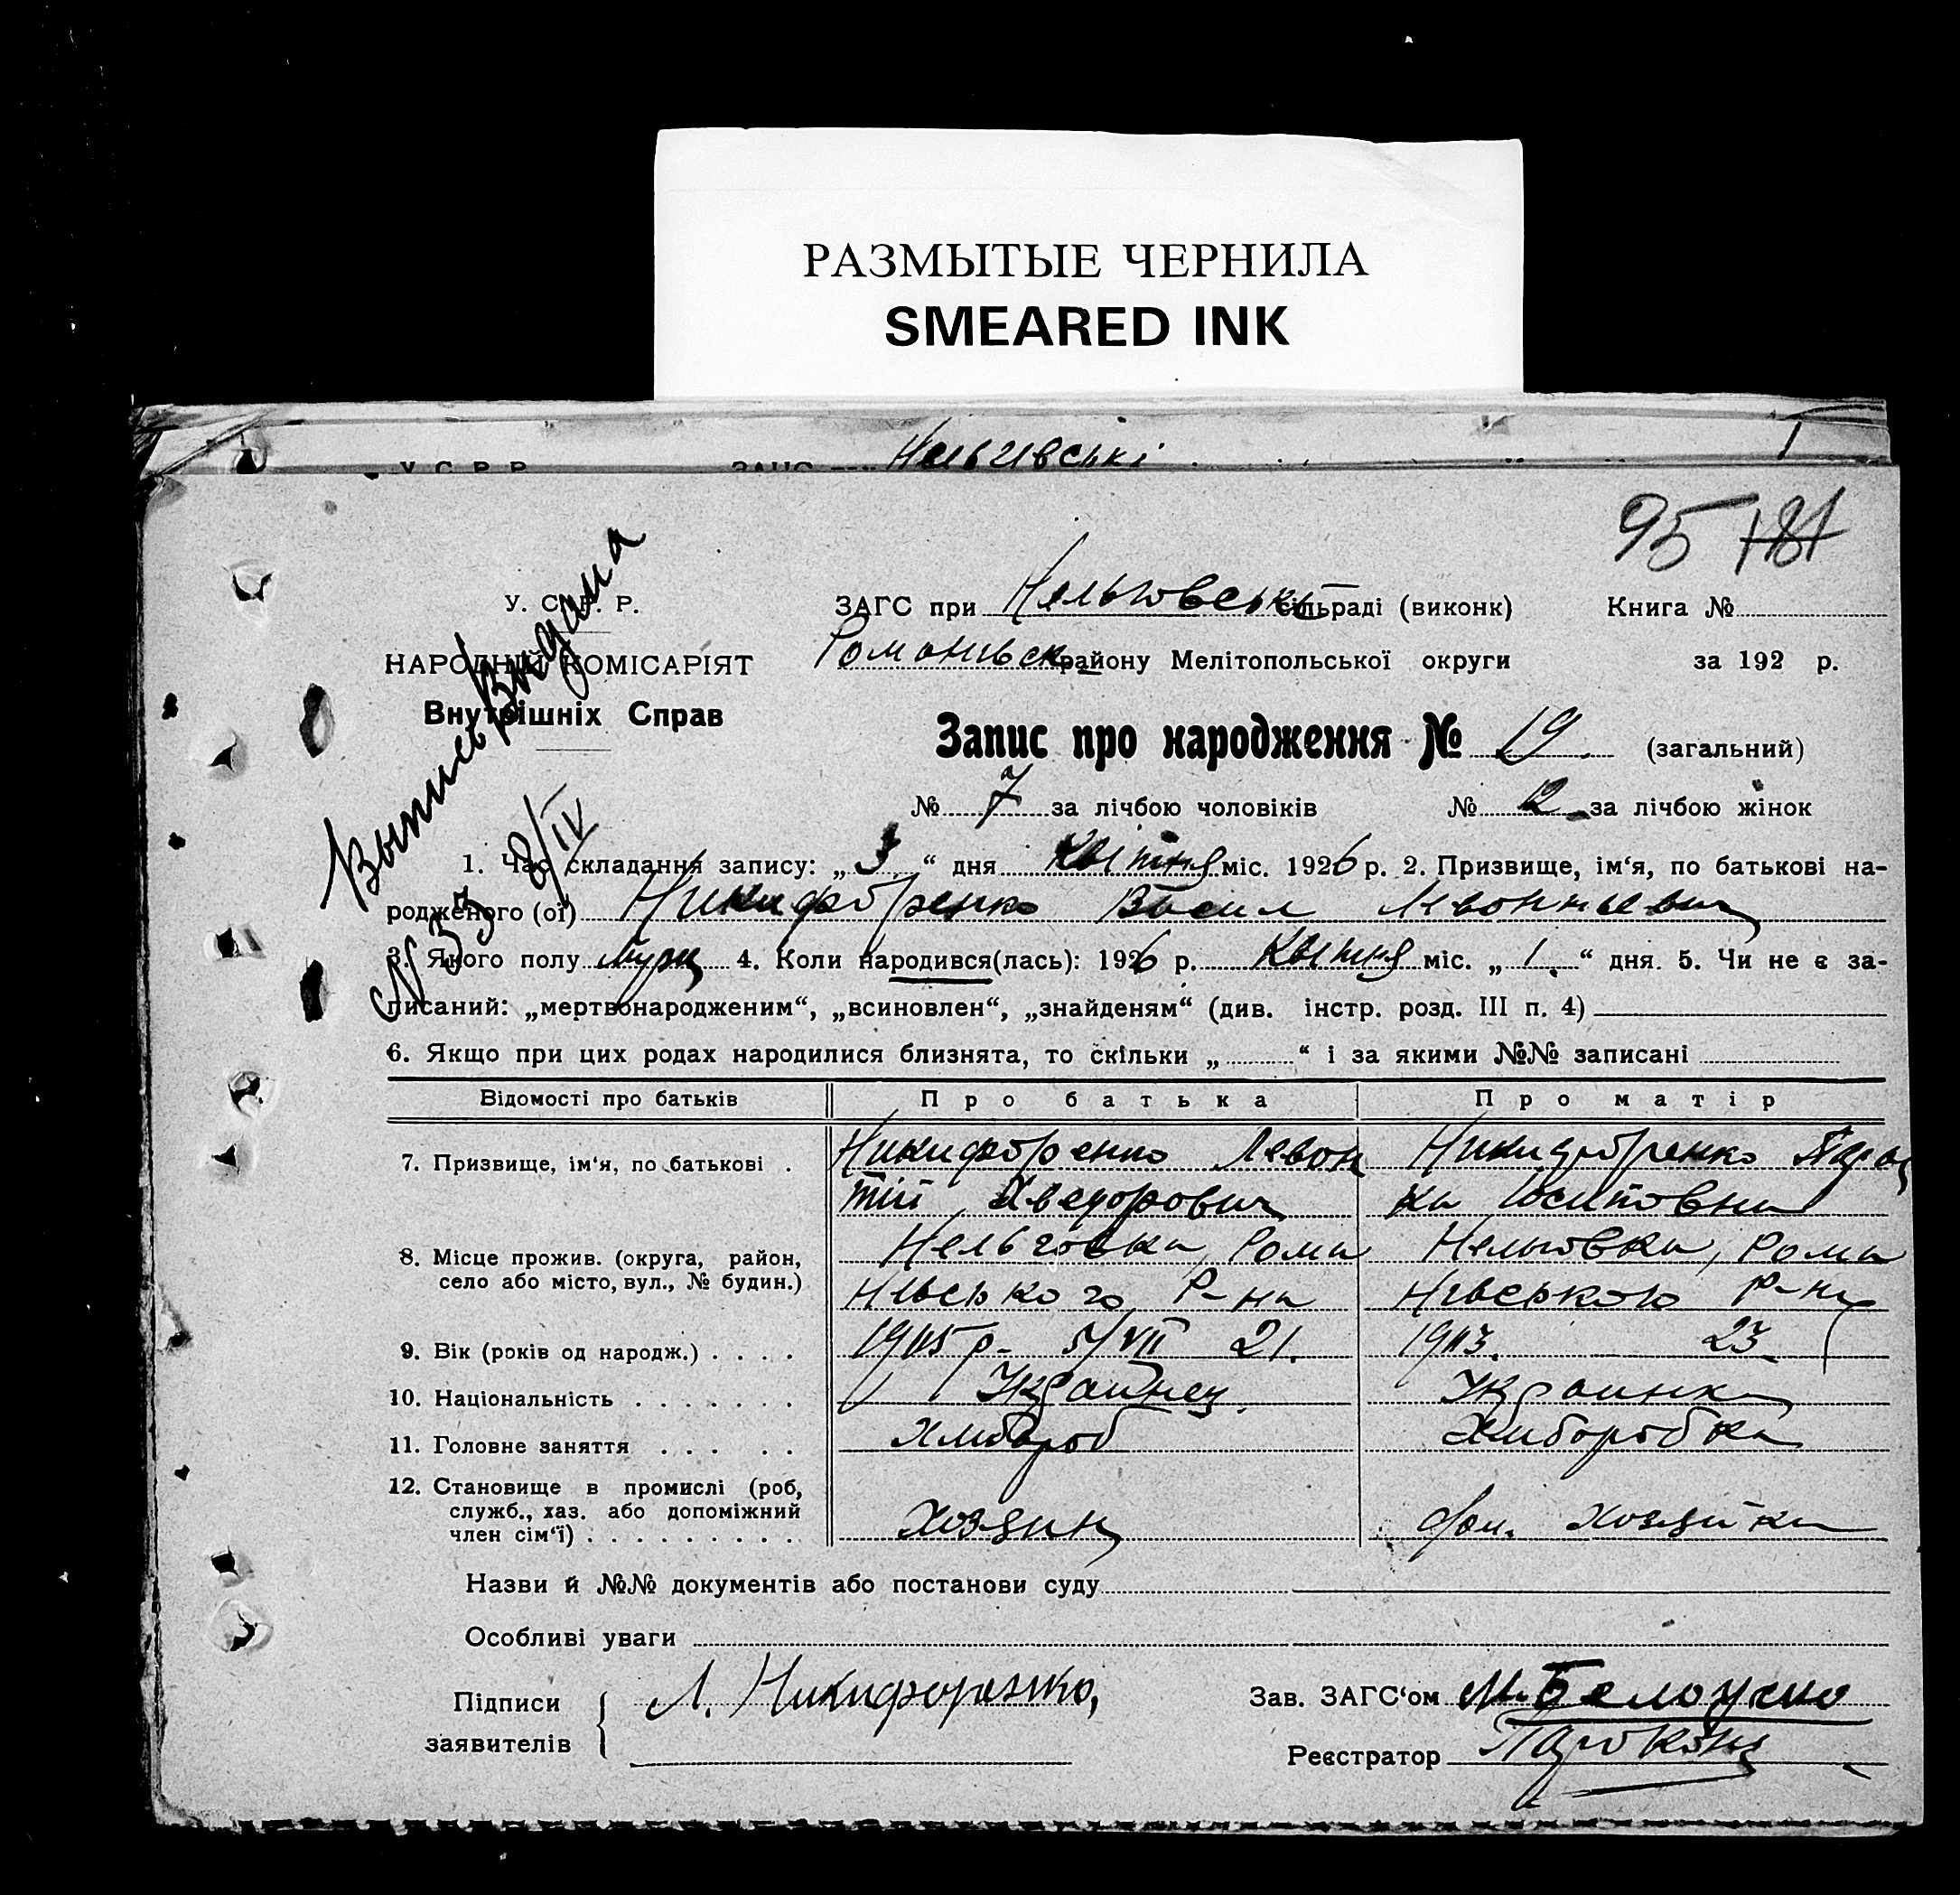 РАЗМЫТЫЕ ЧЕРНИЛА
SMEARED INK
У. С. Р. Р. ЗАГС
95 181
У. С. Р. Р.
ЗАГС при Нельговські сільраді (виконк) Книга №
НАРОДНІЙ КОМІСАРІЯТ
Романівськ району Мелітопольської округи за 192 р.
Внутрішніх Справ
Выпись Выдана
N 33 8/IV
Запис про народження № 19 (загальний)
№ 7 за лічбою чоловіків № 12 за лічбою жінок
1. Час складання запису: „ 3 “ дня Квітня міс. 1926 р. 2. Призвище, ім‘я, по батькові на-
родженого (ої) Никифоренко Васил Левонтьевич
3. Якого полу муж 4. Коли народився(лась): 1926 р. Квітня міс. „ 1 “ дня. 5. Чи не є за-
писаний: „мертвонародженим“, „всиновлен“, „знайденям“ (див. інстр. розд. III п. 4)
6. Якщо при цих родах народилися близнята, то скільки „ “ і за якими №№ записані
Відомості про батьків Про батька Про матір
7. Призвище, ім‘я, по батькові . Никифоренко Левон Никифоренко
тій Хведорович Юситовна
8. Місце прожив. (округа, район, Нельговка, Рома Нельговка, Рома
село або місто, вул., № будин.) нівського Р-на нівського Р-на
9. Вік (років од народж.) . . . . 1905 р. 5/VII 21. 1903. 23
10. Національність . . . . . . . Украйнец Украинка
11. Головне заняття . . . . . Хлібороб Хліборобка
12. Становище в промислі (роб,
служб., хаз. або допоміжний
член сім‘ї) . . . . . . . . . Хозяин дом. хозяйка
Назви й №№ документів або постанови суду
Особливі уваги
Підписи Л. Никифоренко, Зав. ЗАГС‘ом
заявителів Реєстратор